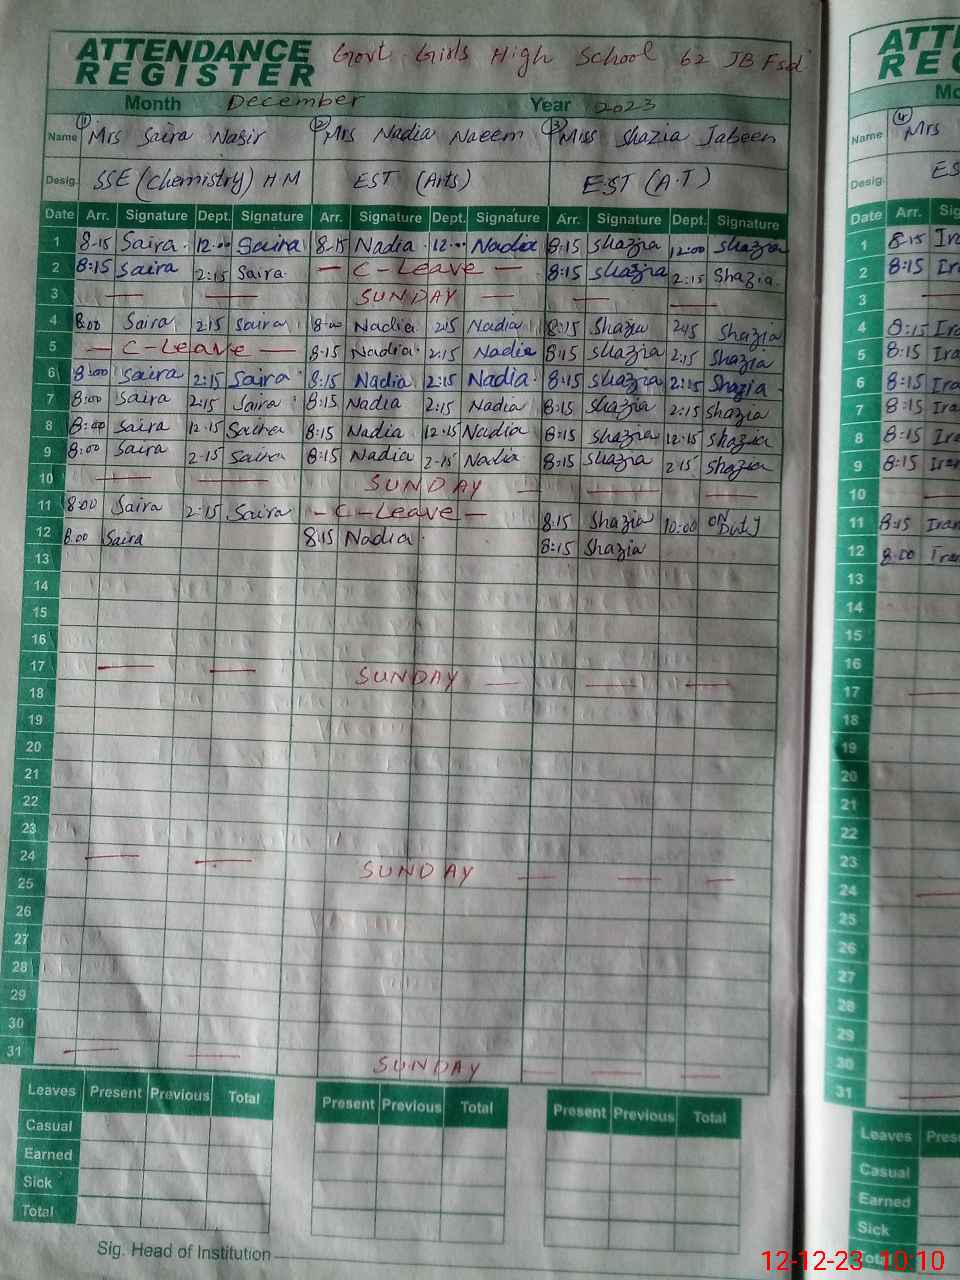 ATTENDANCE REGISTER Govt. Girls High School 62 JB Fsd
Month December Year 2023
Name ① Mrs Saira Nasir ② Mrs Nadia Naeem ③ Miss Shazia Jabeen
Desig. SSE (Chemistry) H M EST (Arts) E.ST (A.T)
Date Arr. Signature Dept. Signature Arr. Signature Dept. Signature Arr. Signature Dept. Signature
1 8-15 Saira 12-00 Saira 8-15 Nadia 12-00 Nadia 8:15 Shazia 12:00 Shazia
2 8:15 Saira 2:15 Saira - C-Leave - 8:15 Shazia 2:15 Shazia
3 SUNDAY
4 8:00 Saira 2:15 Saira 8-00 Nadia 2:15 Nadia 8:15 Shazia 2:15 Shazia
5 - C-Leave - 8-15 Nadia 2:15 Nadia 8:15 Shazia 2:15 Shazia
6 8:00 Saira 2:15 Saira 8:15 Nadia 2:15 Nadia 8:15 Shazia 2:15 Shazia
7 8:00 Saira 2:15 Saira 8:15 Nadia 2:15 Nadia 8:15 Shazia 2:15 Shazia
8 8:00 Saira 12-15 Saira 8:15 Nadia 12-15 Nadia 8:15 Shazia 12:15 Shazia
9 8:00 Saira 2-15 Saira 8:15 Nadia 2-15 Nadia 8:15 Shazia 2:15 Shazia
10 SUNDAY
11 8:00 Saira 2:15 Saira - C-Leave - 8:15 Shazia 10:00 ON Duty
12 8.00 Saira 8:15 Nadia 8:15 Shazia
13
14
15
16
17 SUNDAY
18
19
20
21
22
23
24 SUNDAY
25
26
27
28
29
30
31 SUNDAY
Leaves Present Previous Total Present Previous Total Present Previous Total
Casual
Earned
Sick
Total
Sig. Head of Institution
ATT
REG
Mo
Name ④ Mrs
Desig. ES
Date Arr. Sig
1 8-15 Ira
2 8:15 Ira
3
4 8:15 Ira
5 8:15 Ira
6 8:15 Ira
7 8:15 Ira
8 8:15 Ira
9 8:15 Iran
10
11 8:15 Iran
12 8:00 Iran
13
14
15
16
17
18
19
20
21
22
23
24
25
26
27
28
29
30
31
Leaves Pres
Casual
Earned
Sick
Total
12-12-23 10:10